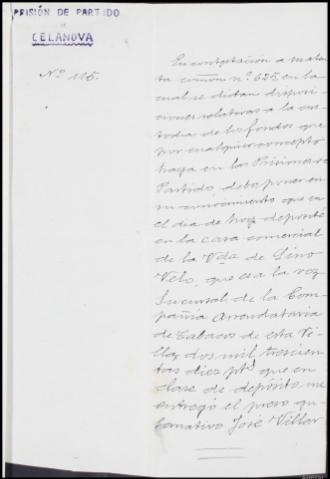 PRISIÓN DE PARTIDO
DE
CELANOVA
Nº 115.
En contestación a
nº 625 en la
cual se dictan disposi-
ciones relativas a la cus-
todia de los fondos que
por cualquier concepto
haya en las Prisiones de
Partido, debo poner en
su conocimiento que en
el día de hoy deposité
en la casa comercial
de la Vda de Lino
Velo, que es a la vez
Sucursal de la Com-
pañia Arrendataria
de Tabacos de esta Vi-
lla, dos mil trescien-
tas diez pts que en
clase de depósito me
entregó el preso gu-
bernativo José Villar